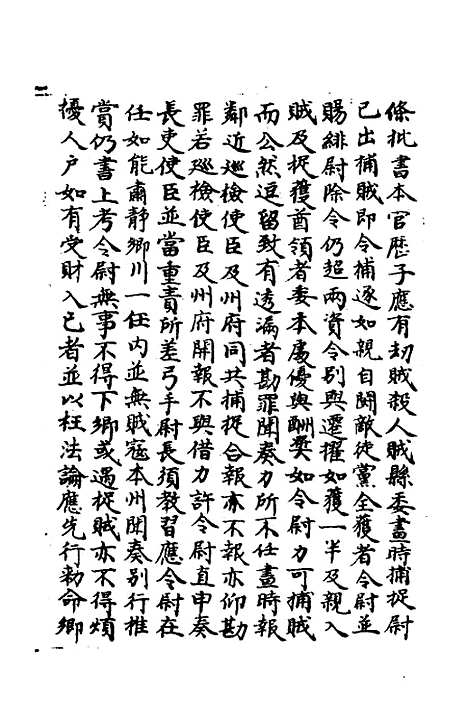 條批書本官歷子應有刼賊殺人賊縣委畫時捕捉尉
已出捕賊即令捕逐如親自鬪敵徒黨全獲者令尉並
賜緋尉除令仍超兩資令别與遷擢如獲一半及親入
賊及捉獲酋領者委本處優與酬奬如令尉力可捕賊
而公然逗留致有透漏者勘罪聞奏力所不任畫時報
鄰近巡檢使臣及州府同共捕捉合報亦不報亦仰勘
罪若巡檢使臣及州府開報不與借力許令尉直申奏
長吏使臣並當重責所差弓手尉長須教習應令尉在
任如能肅靜鄉川一任内並無賊寇本州聞奏别行推
賞仍書上考令尉無事不得下鄉或遇捉賊亦不得煩
擾人户如有受財入己者並以枉法論應先行勑命鄉
二